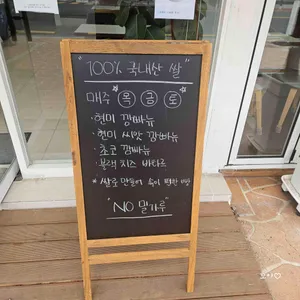 "100% 국내산 쌀"
매주 목 금 토
· 현미 깜빠뉴
· 현미 씨앗 깜빠뉴
· 초코 깜빠뉴
· 블랙 치즈 바타르
* 쌀로 만들어 속이 편한 빵
"NO 밀가루"